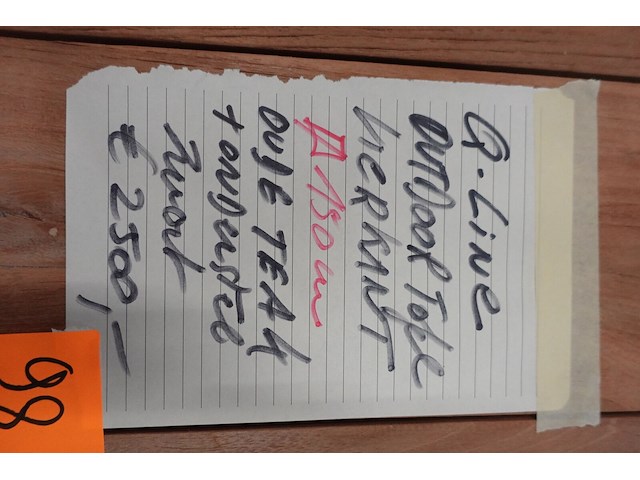 Q-Line
OUTDOOR TAFEL
VIERKANT
150 cm
OUDE TEAK
+ ONDERSTEL
Zwart
€ 2500,-
98